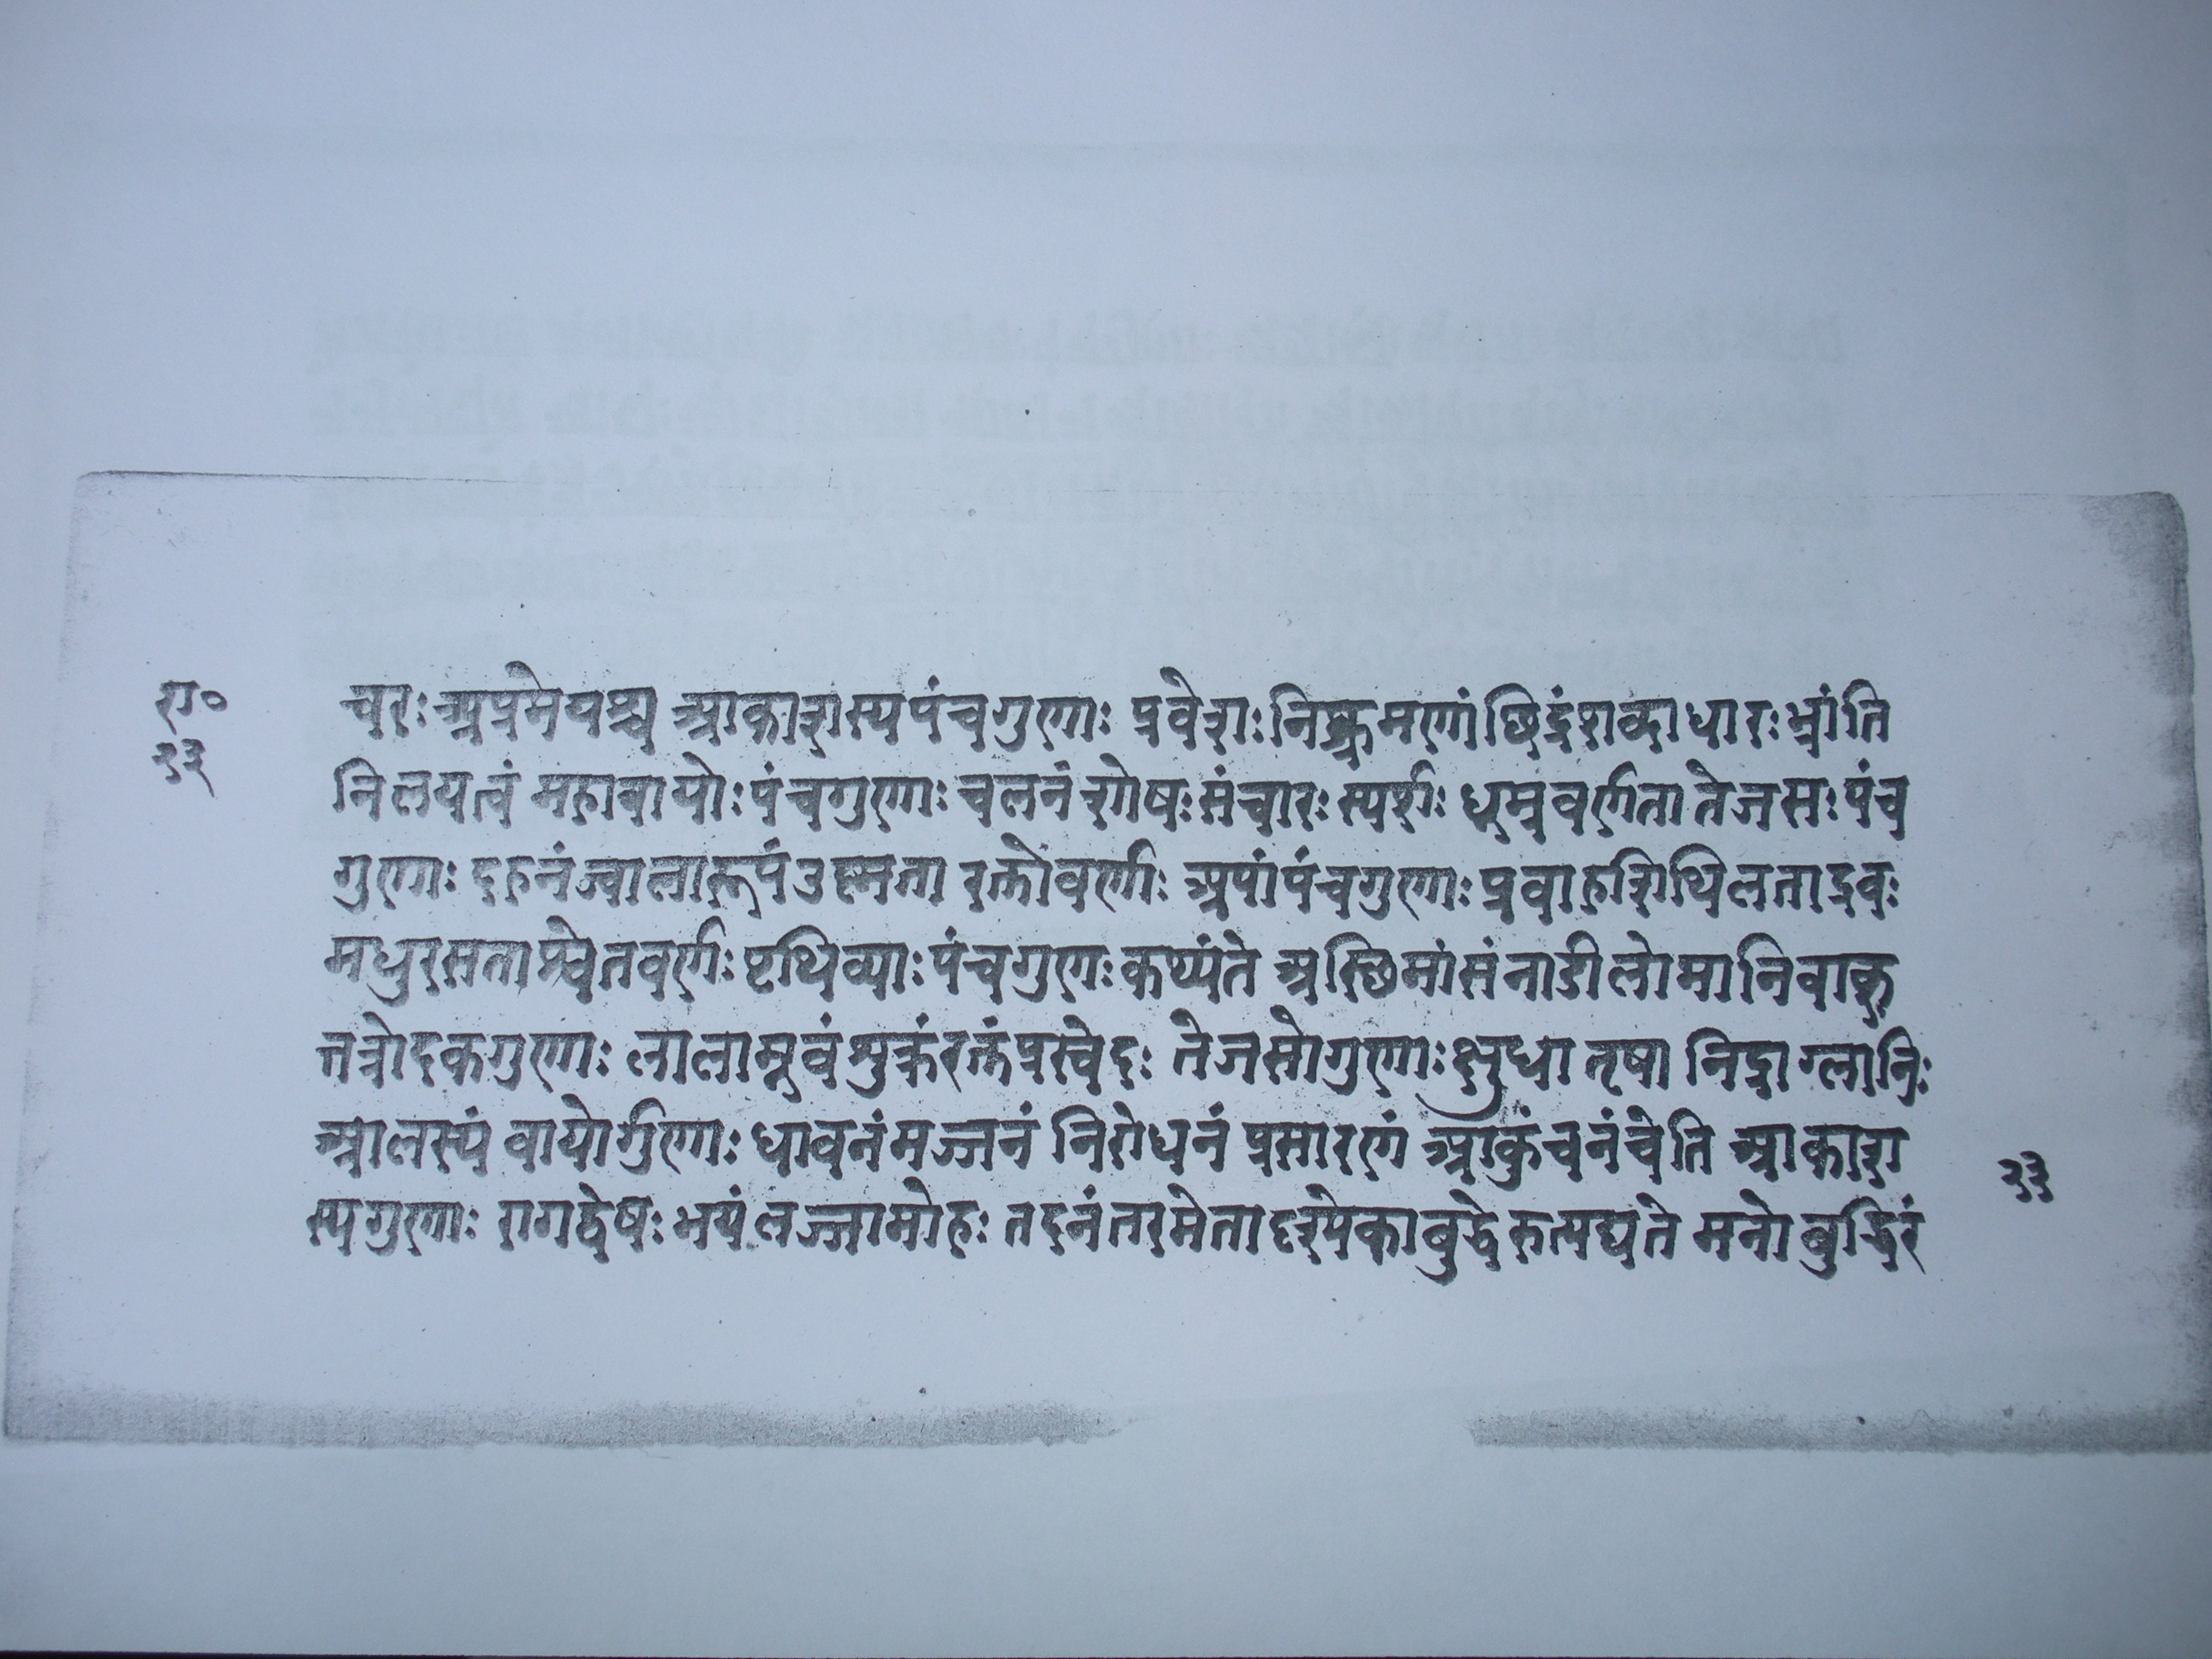 रा०
२३
चरः अप्रमेयश्च आकाशस्य पंचगुणाः प्रवेशः निष्क्रमणं छिद्रं शब्दाधारः भ्रांति
निलयत्वं महावायोः पंचगुणाः चलनं शोषः संचारः स्पर्शः धूम्रवर्णता तेजसः पंच
गुणाः दहनं ज्वालारूपं उष्मता रक्तोवर्णः अपां पंचगुणाः प्रवाहशिथिलताद्रवः
मधुरसता श्वेतवर्णः पृथिव्याः पंचगुणः कथ्यंते अस्छिमांसं नाडी लोमानि वाक्
तत्रोदकगुणाः लालामूत्रं शुक्रं रक्तं प्रस्वेदः तेजसोगुणाः क्षुधा तृषा निद्रा ग्लानिः
आलस्यं वायोर्गुणाः धावनं मज्जनं निरोधनं प्रसारणं आकुंचनं चेति आकाश
स्यगुणाः रागद्वेषः भयं लज्जामोहः तदनंतरमेतादृश्येकाबुद्धेरुत्पद्यते मनो बुद्धिरं
२३